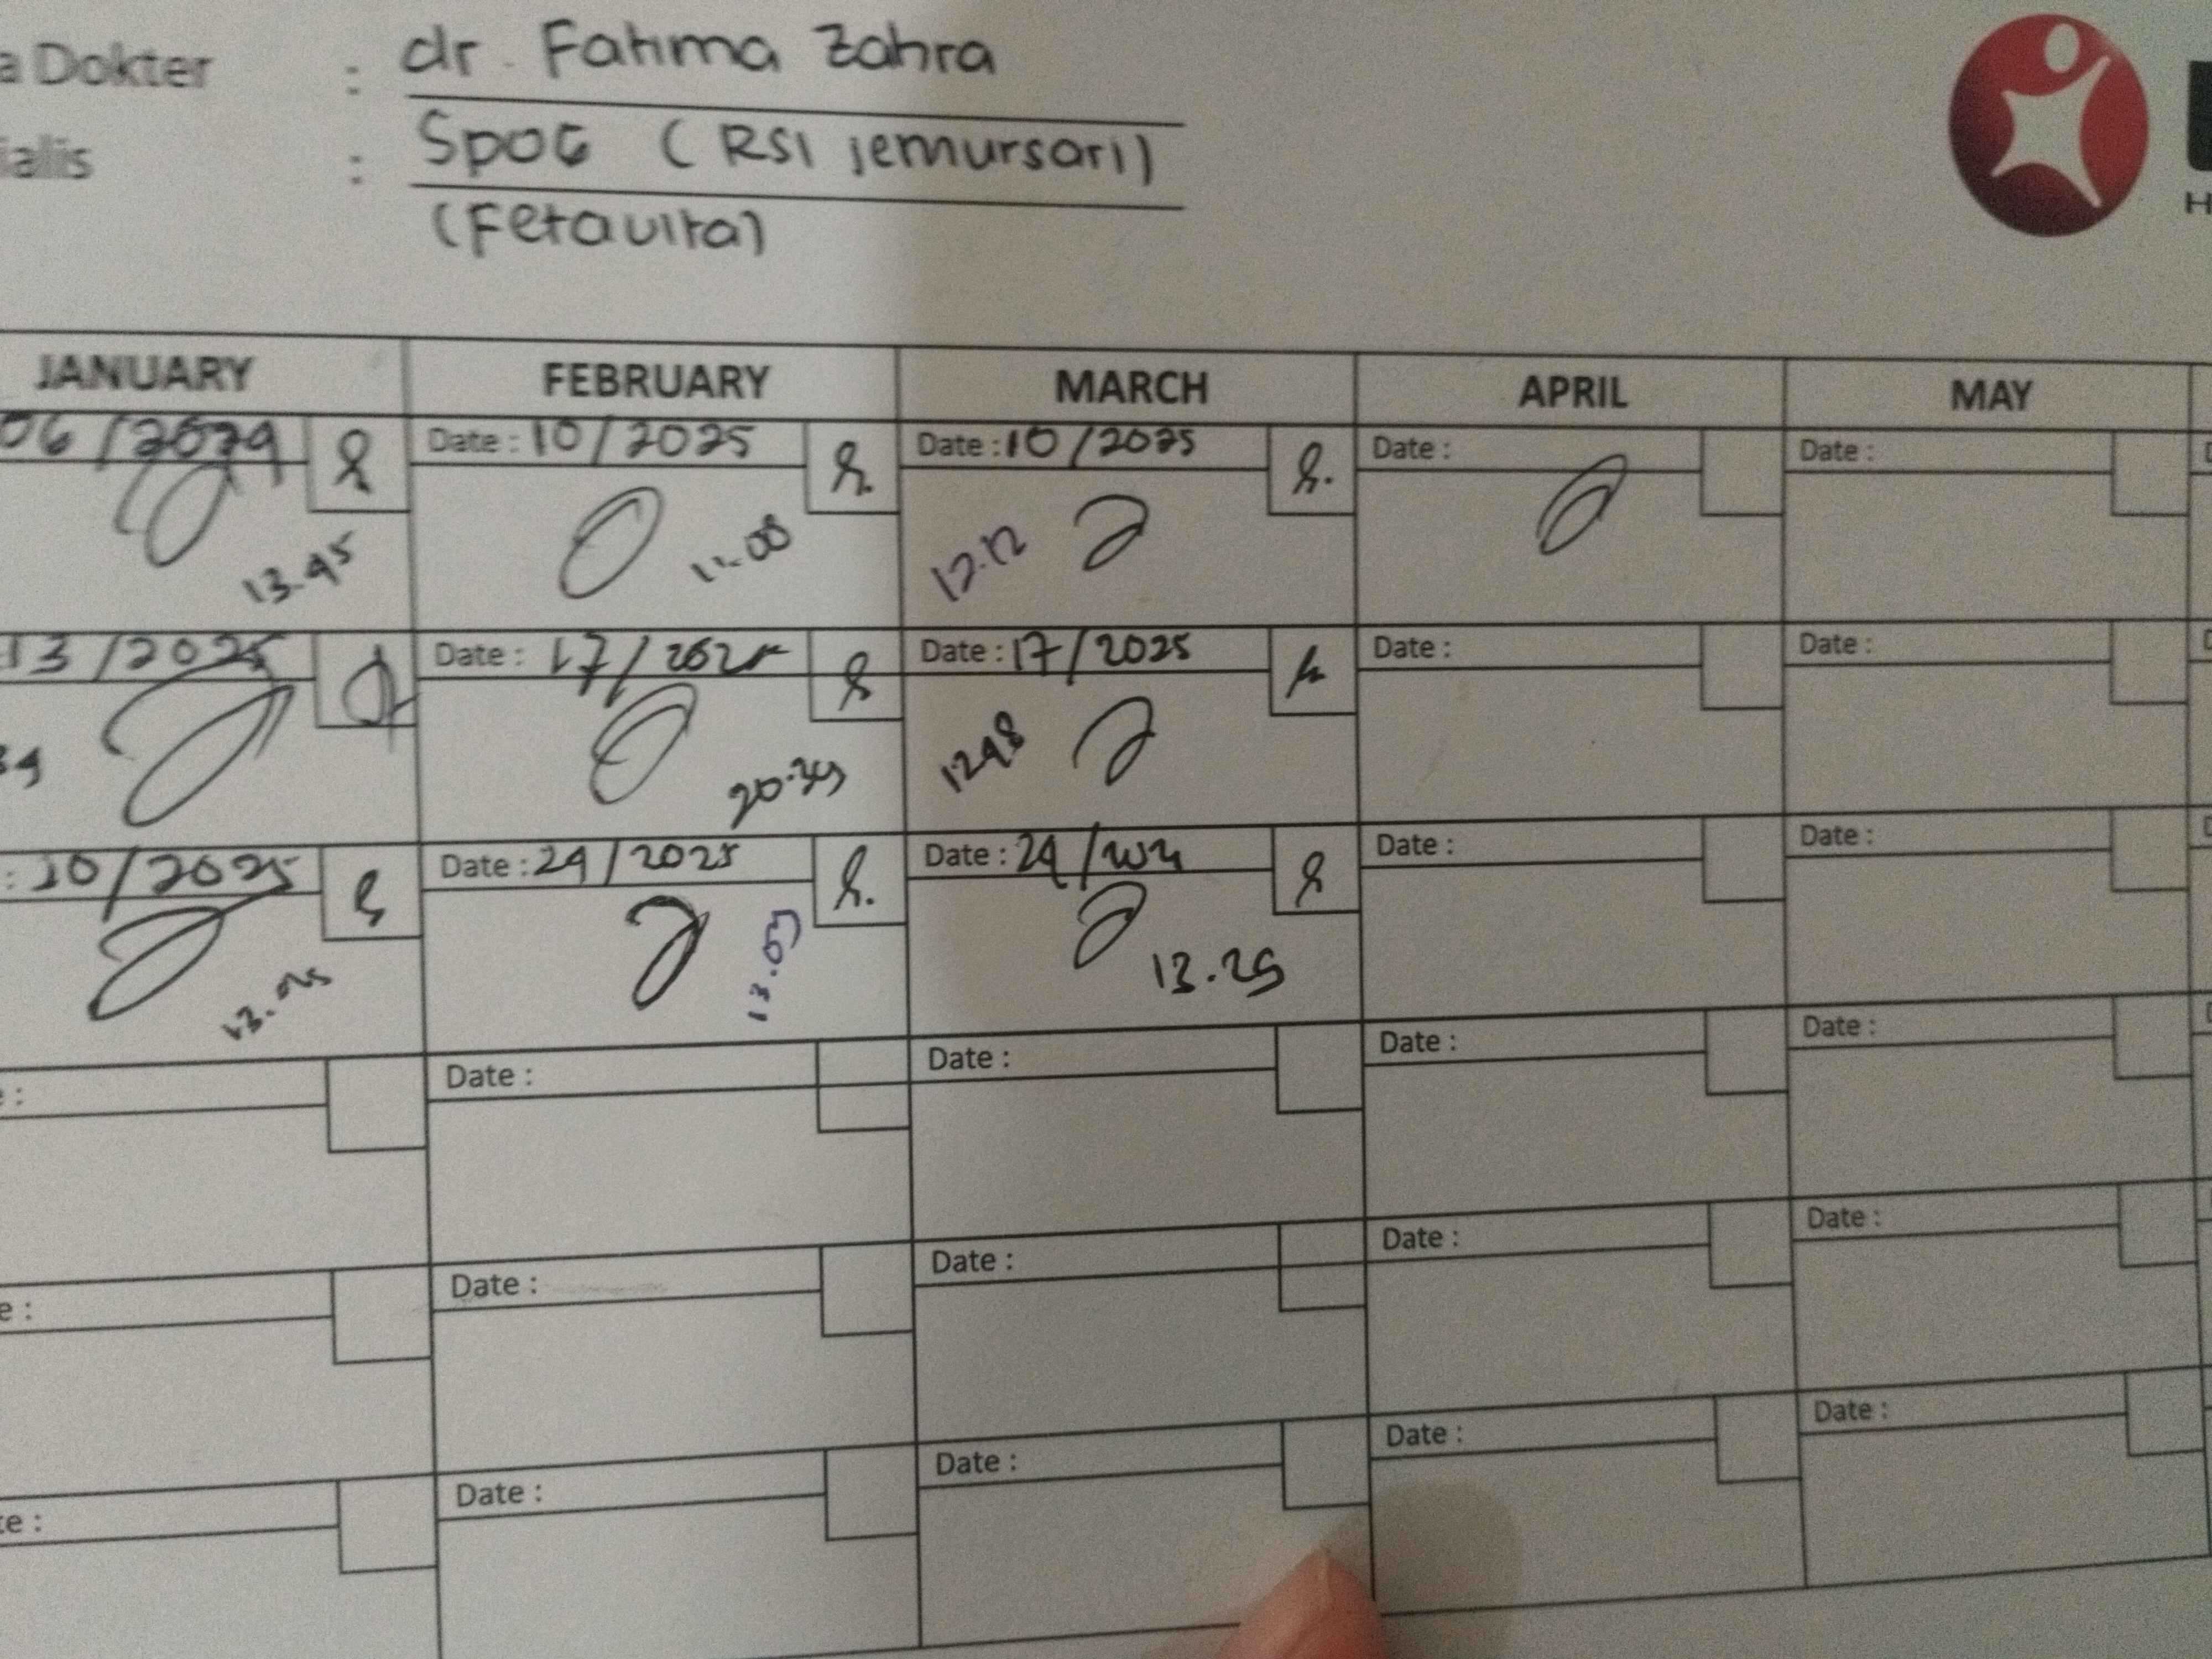 a Dokter : dr. Fatima Zahra
ialis : SpOG (RSI jemursari)
(Fetavita)
H
JANUARY FEBRUARY MARCH APRIL MAY
06/2029 Date : 10/2025 Date : 10/2025 Date : Date :
13.45 11.00 12.12
13/2025 Date : 17/2025 Date : 17/2025 Date : Date :
39 20.39 1248
: 20/2025 Date : 24/2025 Date : 24/ Date : Date :
13.03 13.25
e : Date : Date : Date : Date :
e : Date : Date : Date : Date :
te : Date : Date : Date : Date :